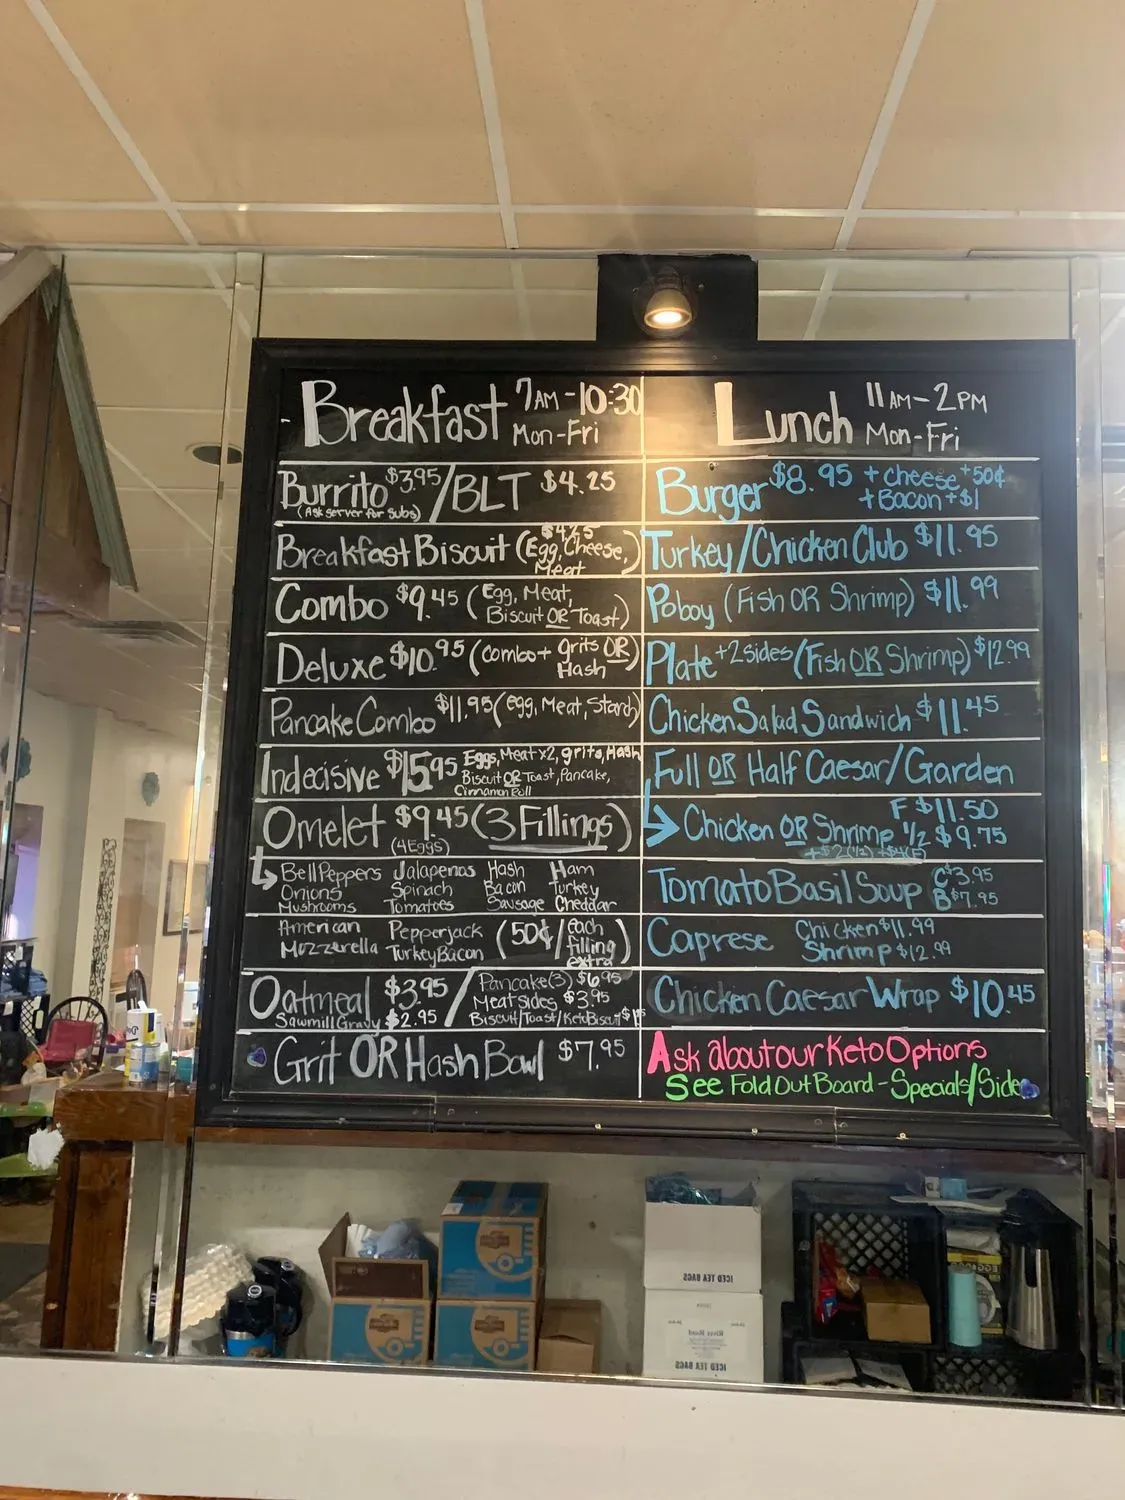 Breakfast 7AM-10:30
Mon-Fri
Burrito $3.95 / BLT $4.25
(Ask server for subs)
Breakfast Biscuit (Egg, Cheese, Meat)
Combo $9.45 (Egg, Meat,
Biscuit OR Toast)
Deluxe $10.95 (Combo + grits OR
Hash)
Pancake Combo $11.95 (egg, Meat, Starch)
Indecisive $15.95 Eggs, Meat x2, grits, Hash
Biscuit OR Toast, Pancake,
Cinnamon Roll
Omelet $9.45 (3 Fillings)
(4 Eggs)
Bell Peppers Jalapenos Hash Ham
Onions Spinach Bacon Turkey
Mushrooms Tomatoes Sausage Cheddar
American Pepperjack (50¢/each
Mozzarella Turkey Bacon filling
extra)
Oatmeal $3.95 / Pancake(3) $6.95
Meat sides $3.95
Sawmill Gravy $2.95 Biscuit/Toast/Keto Biscuit
Grit OR Hash Bowl $7.95
Lunch 11AM-2PM
Mon-Fri
Burger $8.95 + cheese +50¢
+ Bacon +$1
Turkey/Chicken Club $11.95
Poboy (Fish OR Shrimp) $11.99
Plate +2 sides (Fish OR Shrimp) $12.99
Chicken Salad Sandwich $11.45
Full OR Half Caesar/Garden
F $11.50
Chicken OR Shrimp 1/2 $9.75
Tomato Basil Soup C $3.95
B $7.95
Caprese Chicken $11.99
Shrimp $12.99
Chicken Caesar Wrap $10.45
Ask about our Keto Options
See Fold Out Board - Specials/Sides
ICED TEA BAGS
ICED TEA BAGS